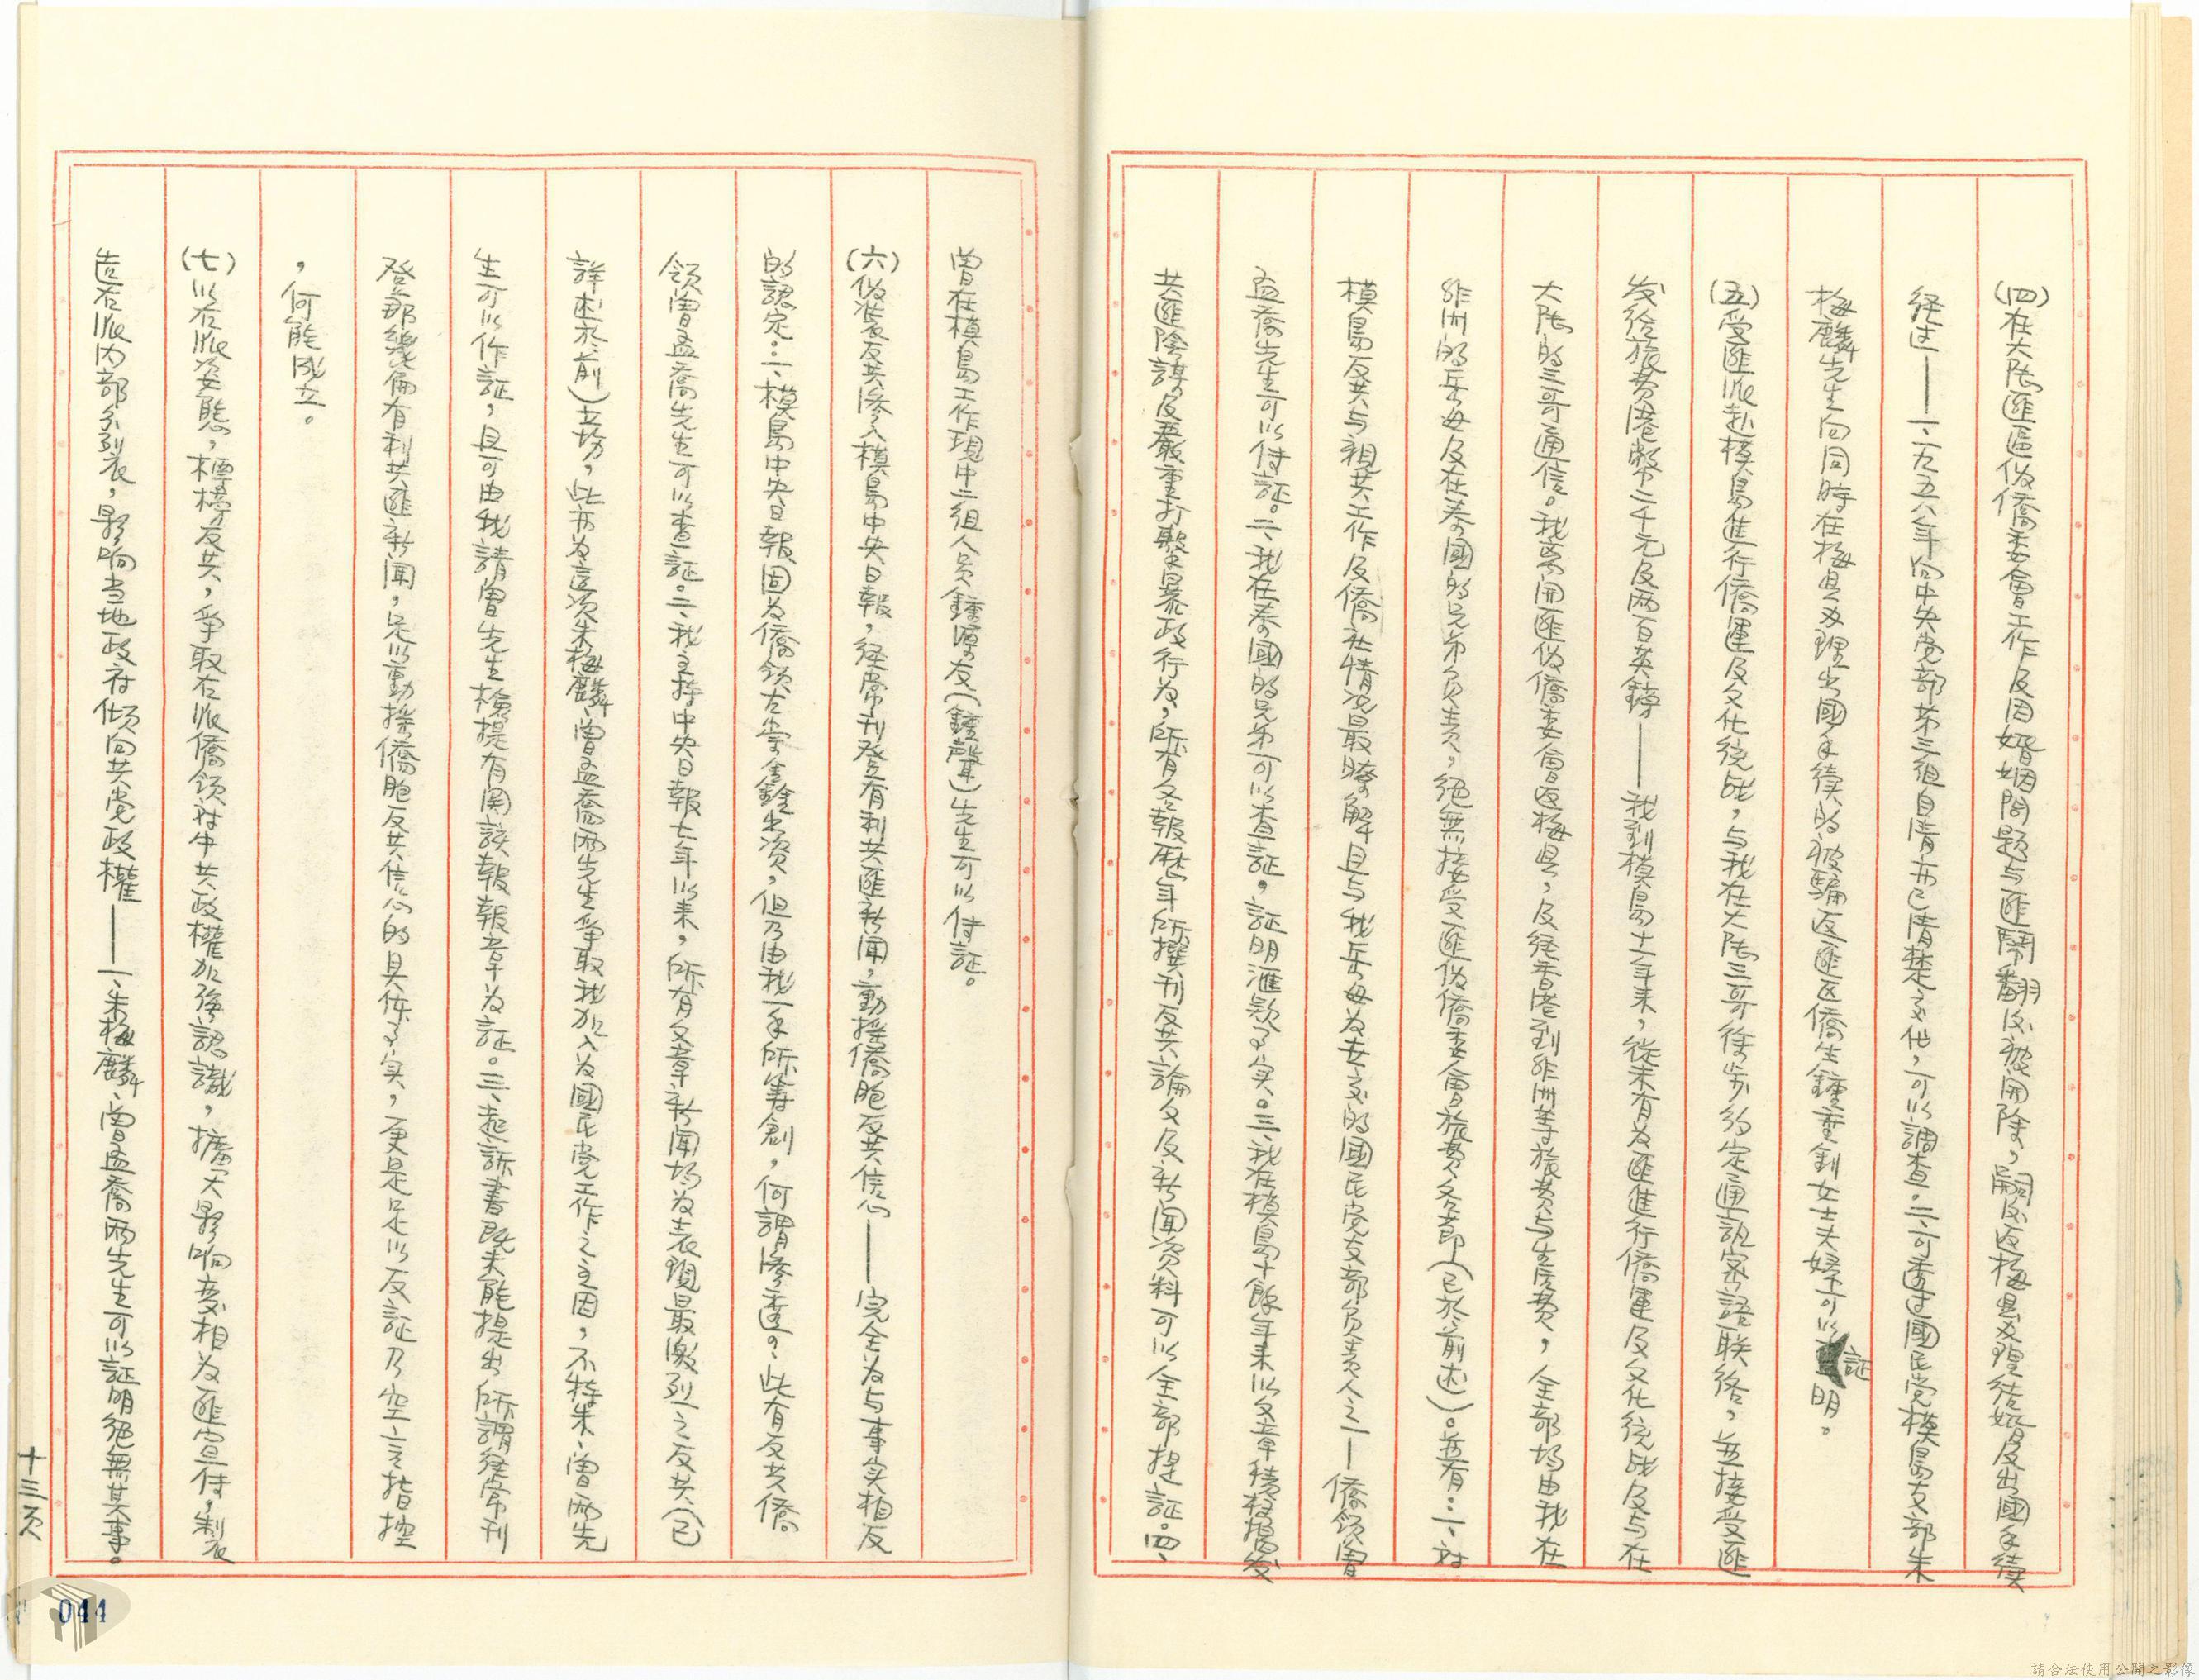 (四)在大陸匪區伪僑委會工作及因婚姻問题与匪鬧翻后被開除，嗣后返梅县办理结婚及出國手續
经过——一、一九五六年向中央党部第三组自清亦已清楚交代，可以調查。二、可透过國民党模島支部朱
梅麟先生向同時在梅县办理出國手續的被骗返匪区僑生鍾重釗女士夫婦可以証明。
(五)受匪派赴模島進行僑運及文化统战，与我在大陸三哥徐步约定通訊密語联络，並接受匪
发给旅费港幣二千元及两百英鎊——我到模島十一年来，從未有为匪進行僑運及文化统战及与在
大陸的三哥通信。我离開匪伪僑委會返梅县，及经香港到非洲等旅费与生活费，全部均由我在
非洲的岳母及在泰國的兄弟负责，絕無接受匪伪僑委會旅费各節(已於前述)。並有：一、对
模島反共与親共工作及僑社情况最瞭解且与我岳母为世交的國民党支部负责人之一僑领曾
孟喬先生可以付証。二、我在泰國的兄弟可以查証，証明滙款事实。三、我在模島十餘年来以文章積极揭发
共匪陰謀及嚴重打擊暴政行为，所有各報歷年所撰刊反共論文及新聞资料可以全部提証。四、
曾在模島工作現中二组人员鍾源友(鍾聲)先生可以付証。
(六)伪装反共滲入模島中央日報，经常刊登有利共匪新闻，動搖僑胞反共信心——完全为与事实相反
的認定。一、模島中央日報固为僑领古学金銓出资，但乃由我一手所筹創，何謂滲透？此有反共僑
领曾孟喬先生可以查証。二、我主持中央日報七年以来，所有文章新闻均为表現最激烈之反共(已
詳述於前)立场，此亦为這次朱梅麟、曾孟喬两先生爭取我加入为國民党工作之主因，不特朱、曾两先
生可以作証，且可由我請曾先生檢提有関該報報章为証。三、起訴書既未能提出所謂经常刊
登那幾篇有利共匪新聞，足以動搖僑胞反共信心的具体事实，更是足以反証乃空言指控
，何能成立。
(七)以右派姿態，標榜反共，爭取右派僑领对中共政權加強認識，擴大影响变相为匪宣传，製衣
造右派内部分列衣，影响当地政府傾向共党政權——一、朱梅麟、曾孟喬两先生可以証明絕無其事。
十三页
044
請合法使用公開之影像